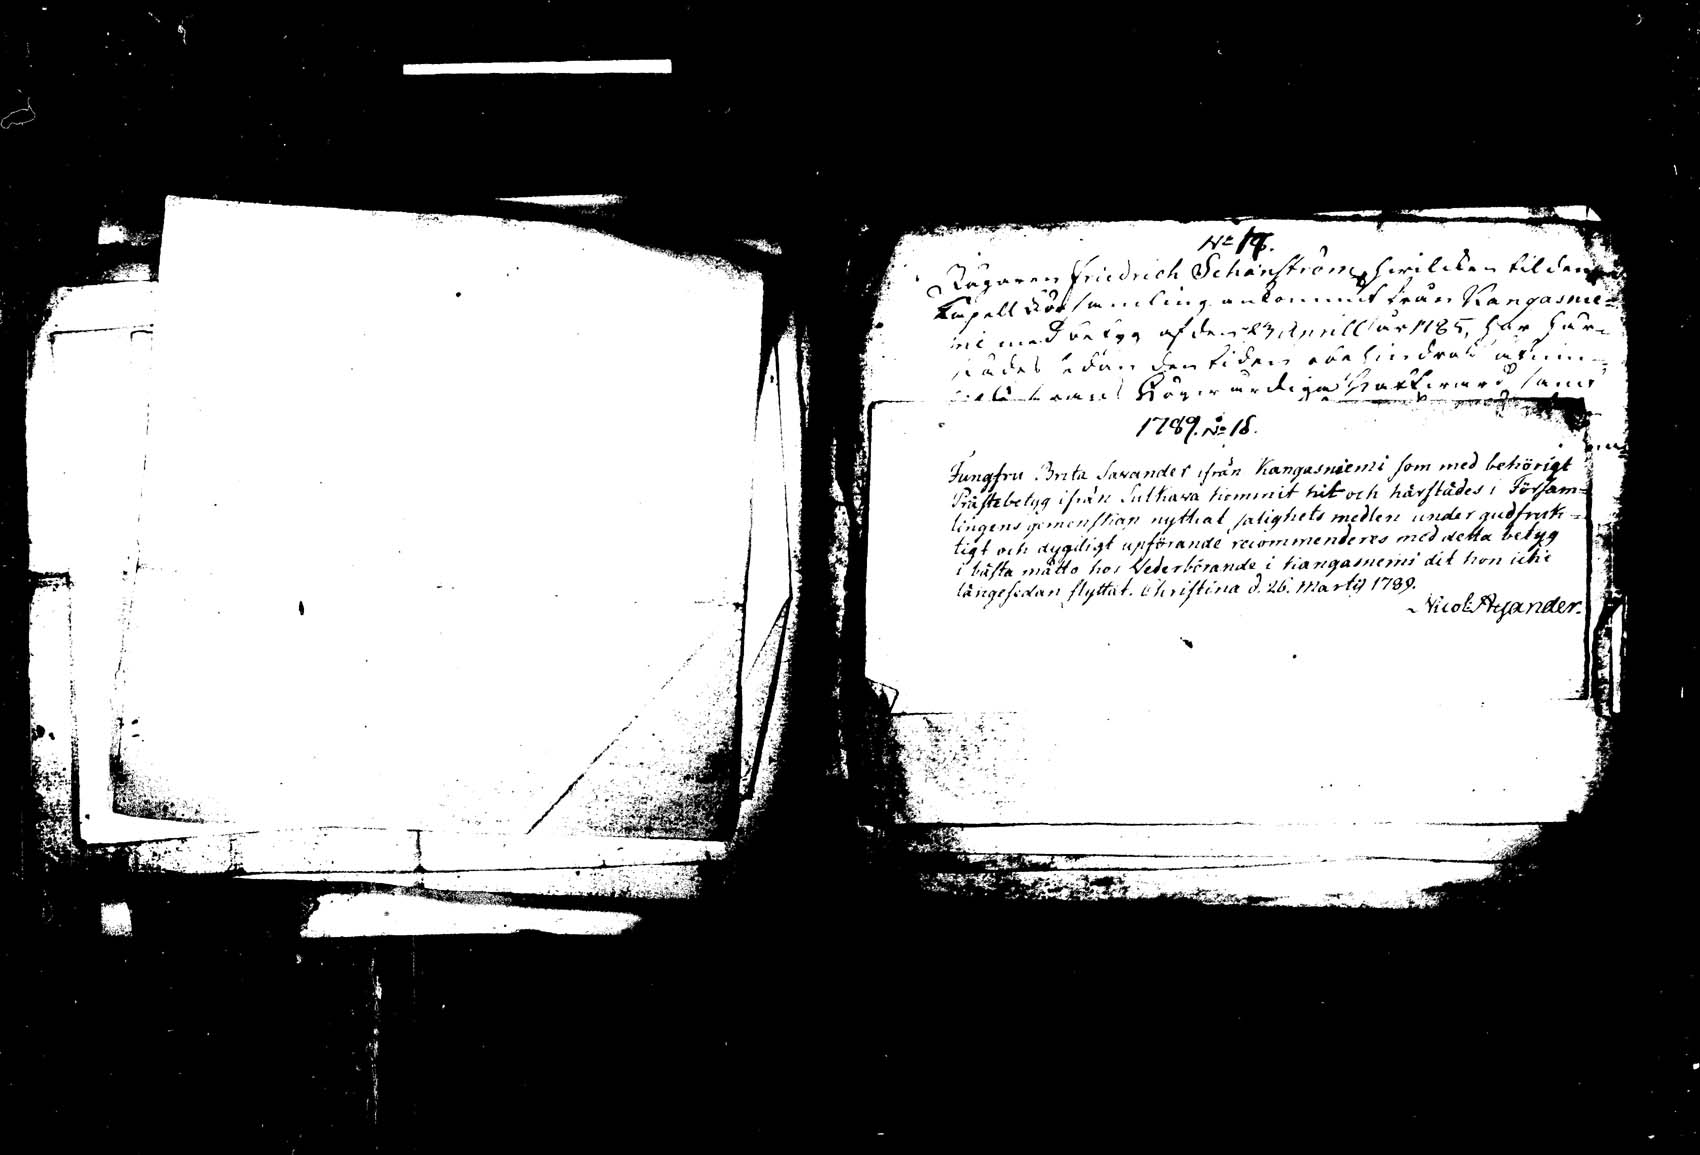 No 18.
Friedrich Schönström, hvilcken til denna
Kapell Församling ankommit från Kangasnie-
mi med betyg af den 23 Aprill år 1785, har här-
städes sedan den tiden obehindrat åtniu-
1789. No 18.
Jungfru Brita Saxander ifrån Kangasniemi som med behörigt
Prästebetyg ifrån Sulkava kommit hit och härstädes i Församm-
lingens gemenskap nyttiat salighets medlen under gudfruk-
tigt och dygdigt upförande recommenderes med detta betyg
i bästa måtto hos Vederbörande i Kangasniemi dit hon icke
längesedan flyttat. Christina d. 26. Martij 1789.
Nicol: Argander.